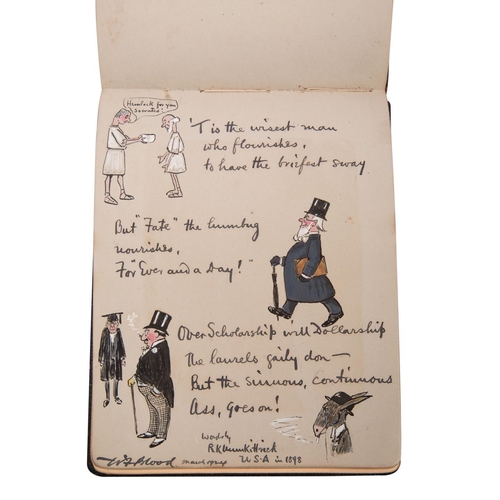 Hemlock for you
Socrates!
'Tis the wisest man
who flourishes,
to have the briefest sway
But "Fate" the humbug
nourishes,
For "Ever and a Day!"
Over Scholarship will Dollarship
The laurels gaily don—
But the sinuous, continuous
Ass, goes on!
Words by
R K Munkittrick
U.S.A in 1898